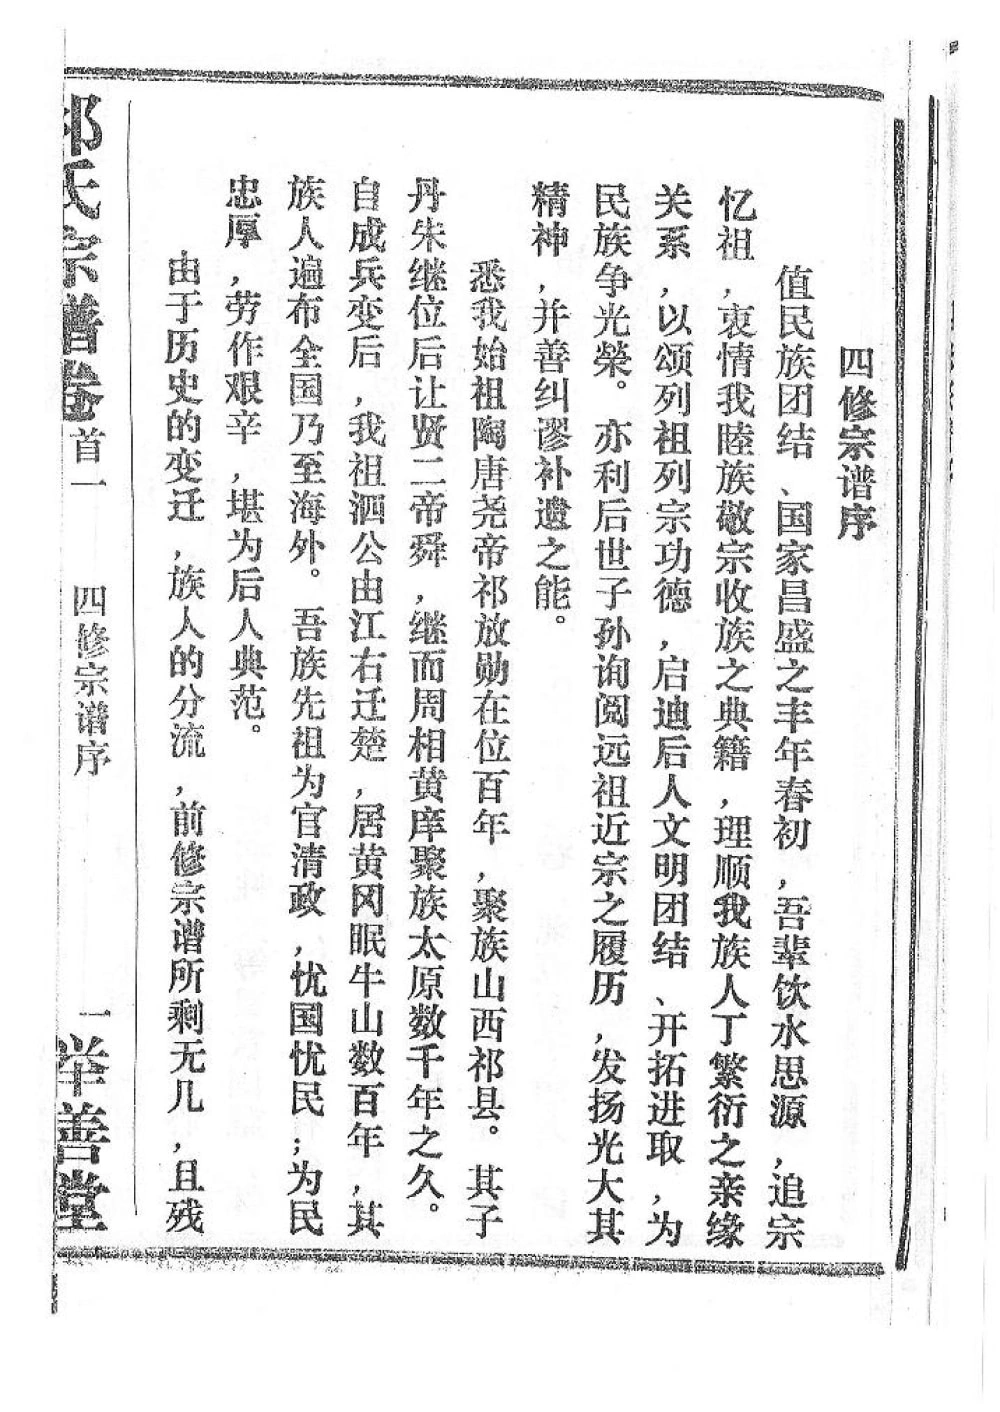 四修宗谱序
值民族团结、国家昌盛之丰年春初,吾辈饮水思源,追宗
忆祖,衷情我睦族敬宗收族之典籍,理顺我族人丁繁衍之亲缘
关系,以颂列祖列宗功德,启迪后人文明团结、开拓进取,为
民族争光榮。亦利后世子孙询阅远祖近宗之履历,发扬光大其
精神,并善纠谬补遗之能。
悉我始祖陶唐尧帝祁放勋在位百年,聚族山西祁县。其子
丹朱继位后让贤二帝舜,继而周相黄庠聚族太原数千年之久。
自成兵变后,我祖泗公由江右迁楚,居黄冈眠牛山数百年,其
族人遍布全国乃至海外。吾族先祖为官清政,忧国忧民;为民
忠厚,劳作艰辛,堪为后人典范。
由于历史的变迁,族人的分流,前修宗谱所剩无几,且残
氏宗谱卷首一 四修宗谱序 一 举善堂